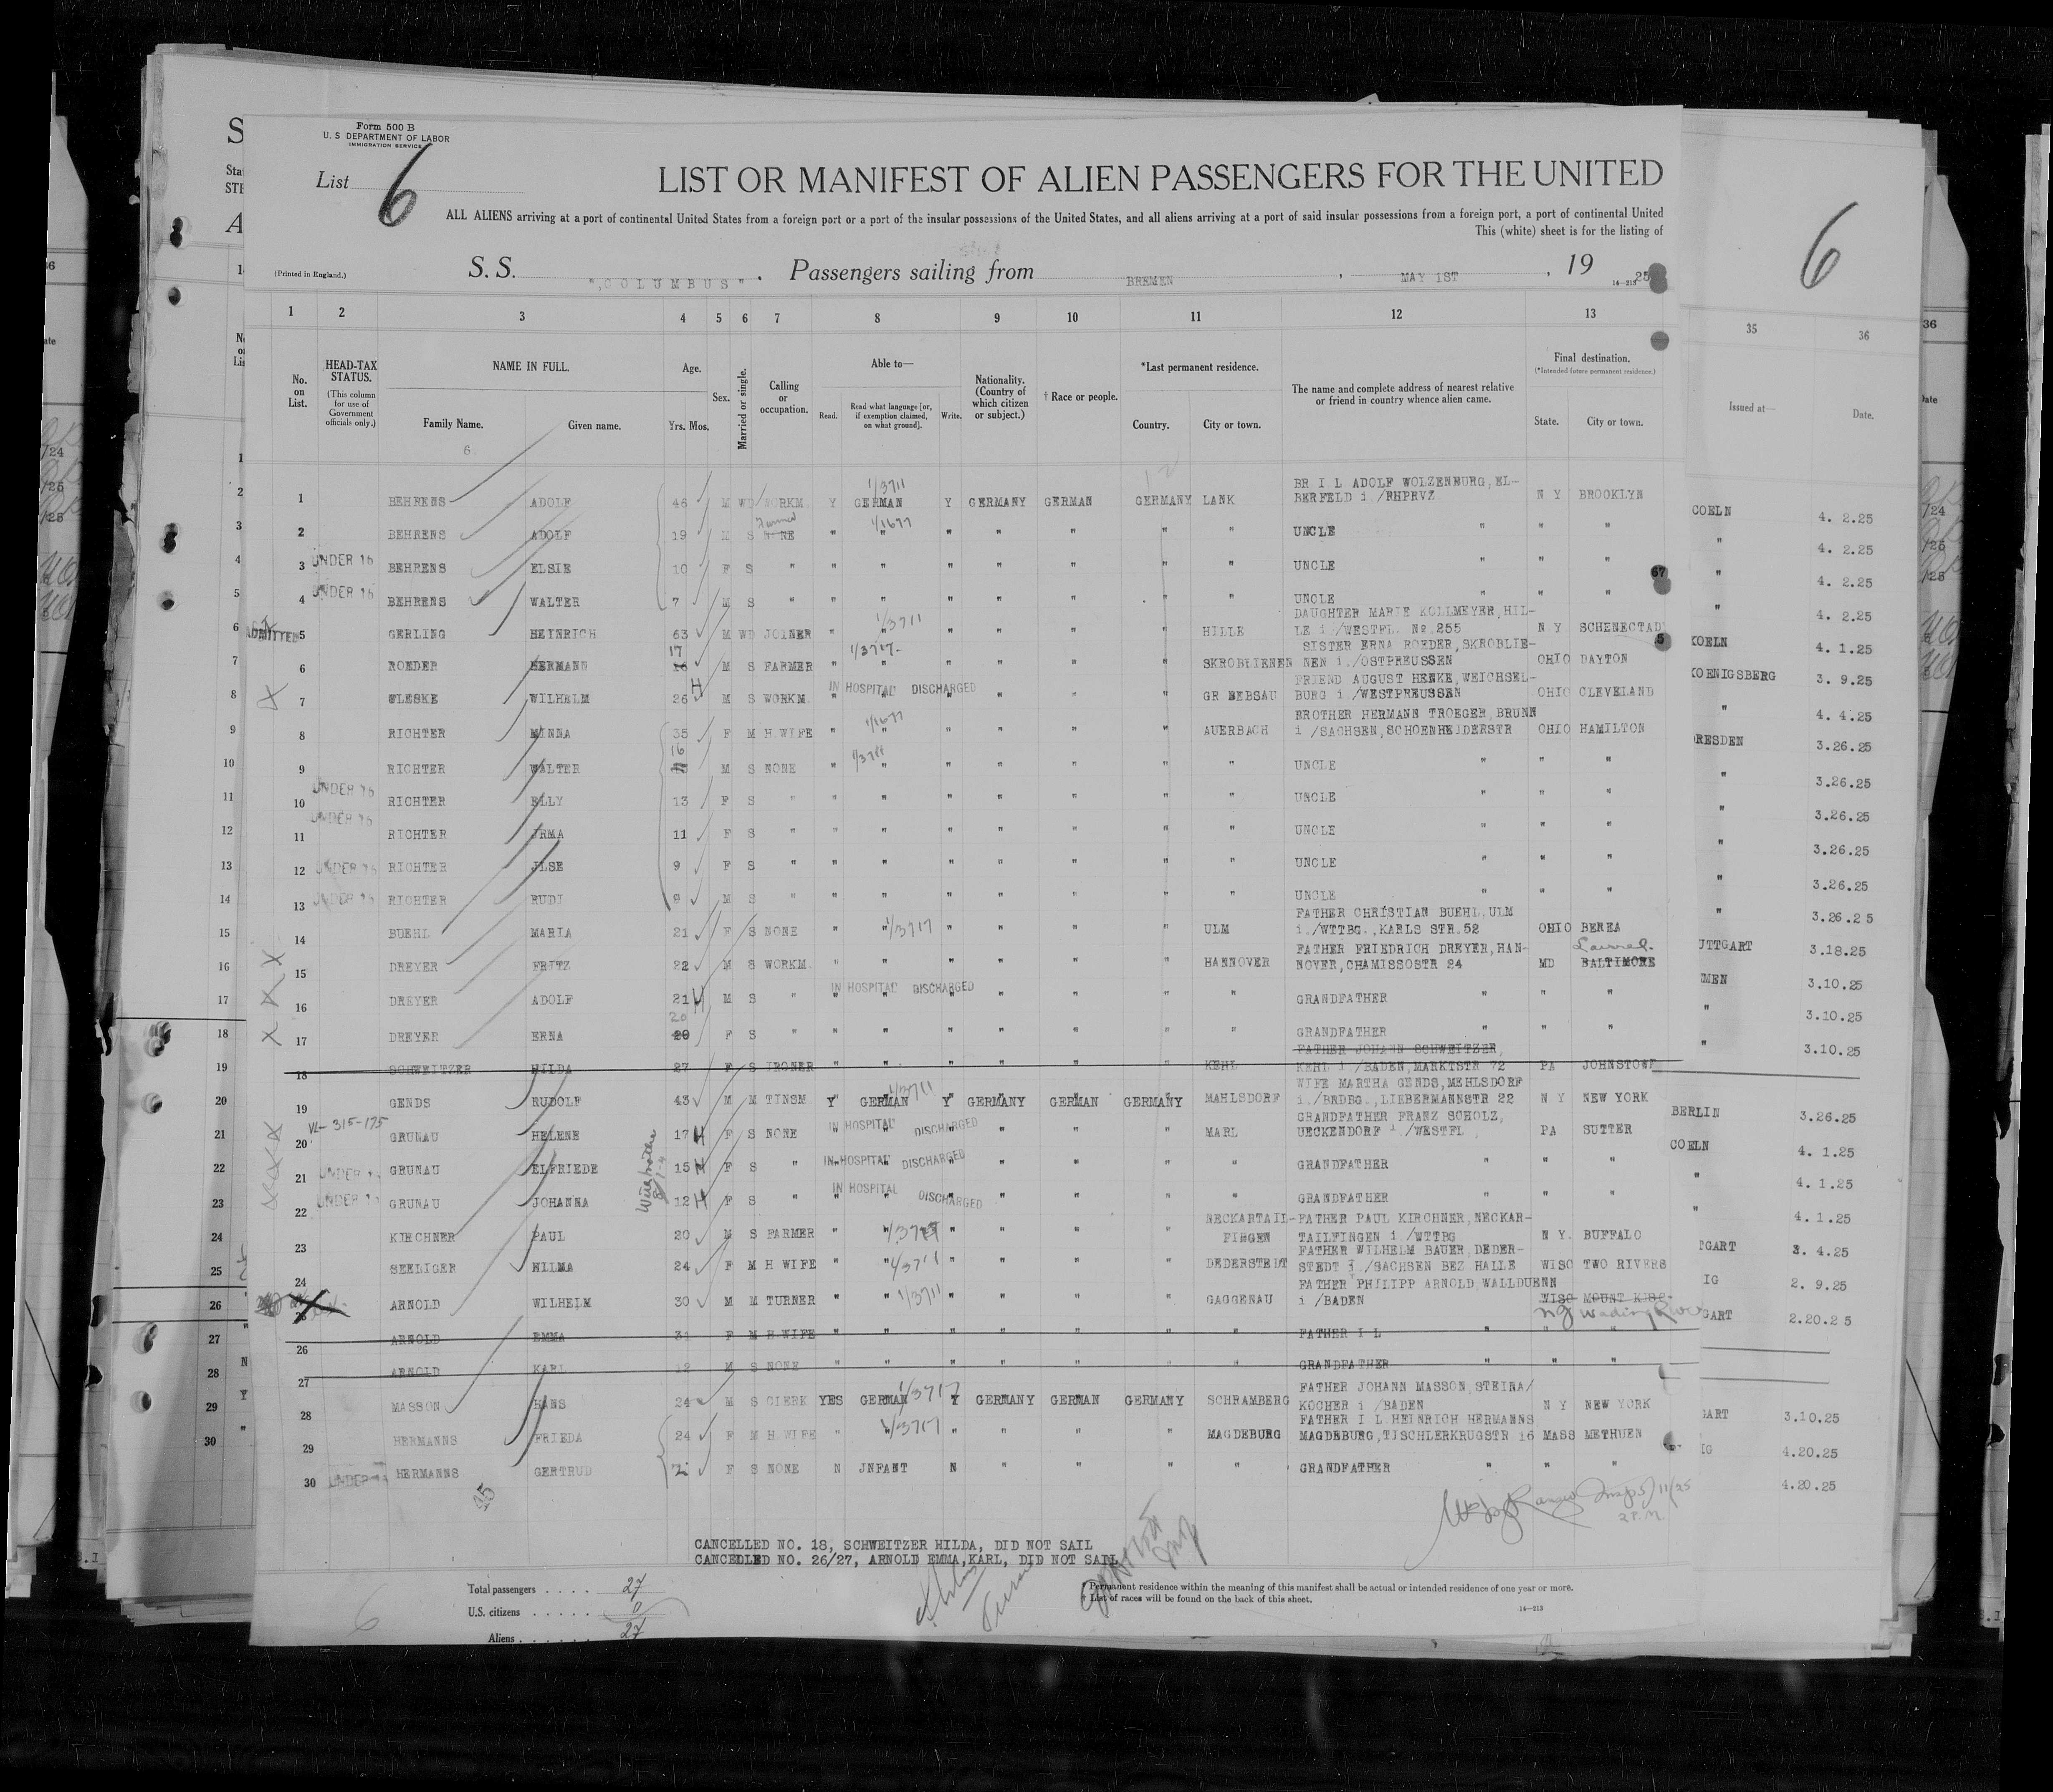 Form 500 B
U. S. DEPARTMENT OF LABOR
IMMIGRATION SERVICE
List 6
LIST OR MANIFEST OF ALIEN PASSENGERS FOR THE UNITED
ALL ALIENS arriving at a port of continental United States from a foreign port or a port of the insular possessions of the United States, and all aliens arriving at a port of said insular possessions from a foreign port, a port of continental United
This (white) sheet is for the listing of
6
(Printed in England.) S. S. "COLUMBUS". Passengers sailing from BREMEN, MAY 1ST, 1925
14-213
1 2 3 4 5 6 7 8 9 10 11 12 13 35 36
No. on List. HEAD-TAX STATUS. (This column for use of Government officials only.) NAME IN FULL. Family Name. Given name. Age. Yrs. Mos. Sex. Married or single. Calling or occupation. Able to— Read. Read what language [or, if exemption claimed, on what ground]. Write. Nationality. (Country of which citizen or subject.) † Race or people. *Last permanent residence. Country. City or town. The name and complete address of nearest relative or friend in country whence alien came. Final destination. (*Intended future permanent residence.) State. City or town. Issued at— Date.
6
BR I L ADOLF WOLZENBURG, EL-
1 BEHRENS ADOLF 46 M WD WORKM Y GERMAN Y GERMANY GERMAN GERMANY LANK BERFELD i /RHPRVZ N Y BROOKLYN COELN 4. 2.25
2 BEHRENS ADOLF 19 M S " " " " " " " UNCLE " " " " 4. 2.25
3 UNDER 16 BEHRENS ELSIE 10 F S " " " " " " " " UNCLE " " " " 4. 2.25
4 UNDER 16 BEHRENS WALTER 7 M S " " " " " " " " UNCLE " " " " 4. 2.25
DAUGHTER MARIE KOLLMEYER, HIL-
ADMITTED 5 GERLING HEINRICH 63 M WD JOINER " " " " " " HILLE LE i /WESTFL. No 255 N Y SCHENECTAD KOELN 4. 1.25
17 SISTER ERNA ROEDER, SKROBLIE-
6 ROEDER HERMANN 16 M S FARMER " " " " " " SKROBLIENEN NEN i./OSTPREUSSEN OHIO DAYTON KOENIGSBERG 3. 9.25
IN HOSPITAL DISCHARGED FRIEND AUGUST HENKE, WEICHSEL-
7 WILHELM 26 H M S WORKM " " " " " GR BEBSAU BURG i /WESTPREUSSEN OHIO CLEVELAND " 4. 4.25
BROTHER HERMANN TROEGER, BRUNN
8 RICHTER MINNA 35 F M H.WIFE " " " " " " AUERBACH i /SACHSEN, SCHOENHEIDERSTR OHIO HAMILTON DRESDEN 3.26.25
16
9 RICHTER WALTER M S NONE " " " " " " " UNCLE " " " " 3.26.25
10 UNDER 16 RICHTER ELLY 13 F S " " " " " " " " UNCLE " " " " 3.26.25
11 UNDER 16 RICHTER JRMA 11 F S " " " " " " " " UNCLE " " " " 3.26.25
12 UNDER 16 RICHTER JLSE 9 F S " " " " " " " " UNCLE " " " " 3.26.25
13 UNDER 16 RICHTER RUDI 9 M S " " " " " " " " UNCLE " " " " 3.26.25
FATHER CHRISTIAN BUEHL, ULM
14 BUEHL MARIA 21 F S NONE " " " " " " ULM i./WTTBG., KARLS STR.52 OHIO BEREA UTTGART 3.18.25
FATHER FRIEDRICH DREYER, HAN- Laurel
15 DREYER FRITZ 22 M S WORKM " " " " " " HANNOVER NOVER, CHAMISSOSTR 24 MD BALTIMORE MEN 3.10.25
IN HOSPITAL DISCHARGED
16 DREYER ADOLF 21 H M S " " " " " " " " GRANDFATHER " " " " 3.10.25
20
17 DREYER ERNA F S " " " " " " " " GRANDFATHER " " " " 3.10.25
FATHER JOHANN SCHWEITZER,
18 SCHWEITZER HILDA 27 F S IRONER " " " " " " KEHL KEHL i /BADEN, MARKTSTR 72 PA JOHNSTOWN
WIFE MARTHA GENDS, MEHLSDORF
19 GENDS RUDOLF 43 M M TINSM Y GERMAN Y GERMANY GERMAN GERMANY MAHLSDORF i./BRDBG., LIEBERMANNSTR 22 N Y NEW YORK BERLIN 3.26.25
VL-315-175 IN HOSPITAL DISCHARGED GRANDFATHER FRANZ SCHOLZ,
20 GRUNAU HELENE 17 H F S NONE " " " " " " MARL UECKENDORF i /WESTFL PA SUTTER COELN 4. 1.25
IN HOSPITAL DISCHARGED
21 UNDER 16 GRUNAU ELFRIEDE 15 H F S " " " " " " " " GRANDFATHER " " " " 4. 1.25
IN HOSPITAL DISCHARGED
22 UNDER 16 GRUNAU JOHANNA 12 H F S " " " " " " " " GRANDFATHER " " " " 4. 1.25
NECKARTAIL- FATHER PAUL KIRCHNER, NECKAR-
23 KIRCHNER PAUL 20 M S FARMER " " " " " " FINGEN TAILFINGEN i /WTTBG N Y. BUFFALO TGART 3. 4.25
FATHER WILHELM BAUER, DEDER-
24 SEELIGER HILMA 24 F M H WIFE " " " " " " DEDERSTEDT STEDT i./SACHSEN BEZ HALLE WISC TWO RIVERS IG 2. 9.25
FATHER PHILIPP ARNOLD, WALLDUERN
25 ARNOLD WILHELM 30 M M TURNER " " " " " " GAGGENAU i /BADEN WISC MOUNT KISC. GART 2.20.25
NY Wading River
26 ARNOLD EMMA 31 F M H.WIFE " " " " " " " FATHER I L " " "
27 ARNOLD KARL 12 M S NONE " " " " " " " GRANDFATHER " " "
FATHER JOHANN MASSON, STEINA/
28 MASSON HANS 24 M S CLERK YES GERMAN Y GERMANY GERMAN GERMANY SCHRAMBERG KOCHER i /BADEN N Y NEW YORK GART 3.10.25
FATHER I L HEINRICH HERMANNS
29 HERMANNS FRIEDA 24 F M H.WIFE " " " " " " MAGDEBURG MAGDEBURG, TISCHLERKRUGSTR 16 MASS METHUEN IG 4.20.25
30 UNDER 16 HERMANNS GERTRUD F S NONE N JNFANT N " " " " GRANDFATHER " " " 4.20.25
CANCELLED NO. 18, SCHWEITZER HILDA, DID NOT SAIL
CANCELLED NO. 26/27, ARNOLD EMMA, KARL, DID NOT SAIL
Total passengers . . . . 27
U.S. citizens . . . . . 0
Aliens . . . . . . 27
* Permanent residence within the meaning of this manifest shall be actual or intended residence of one year or more.
† List of races will be found on the back of this sheet.
14-213